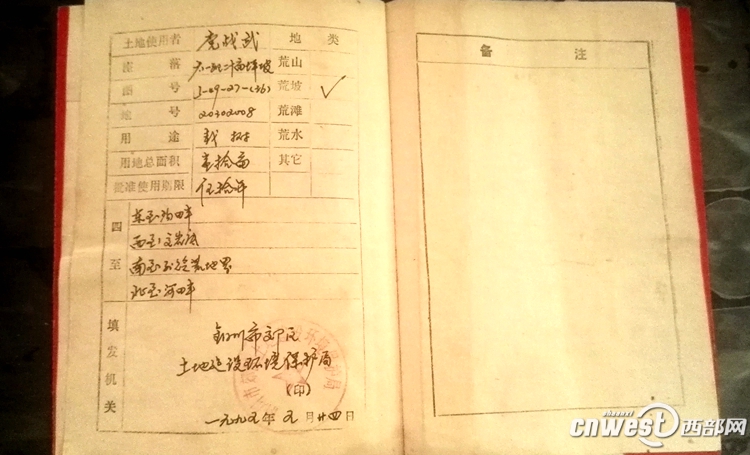 土地使用者 党战武 地类
座落 荒山
图号 J-09-27-(36) 荒坡 ✓
地号 20302008 荒滩
用途 栽树 荒水
用地总面积 壹拾亩 其它
批准使用期限 伍拾年
四至
东至沟畔
西至
南至 地界
北至河畔
填发机关
土地建设环境保护局
(印)
一九九五年 五月廿四日
备注
shaanxi
cnwest 西部网